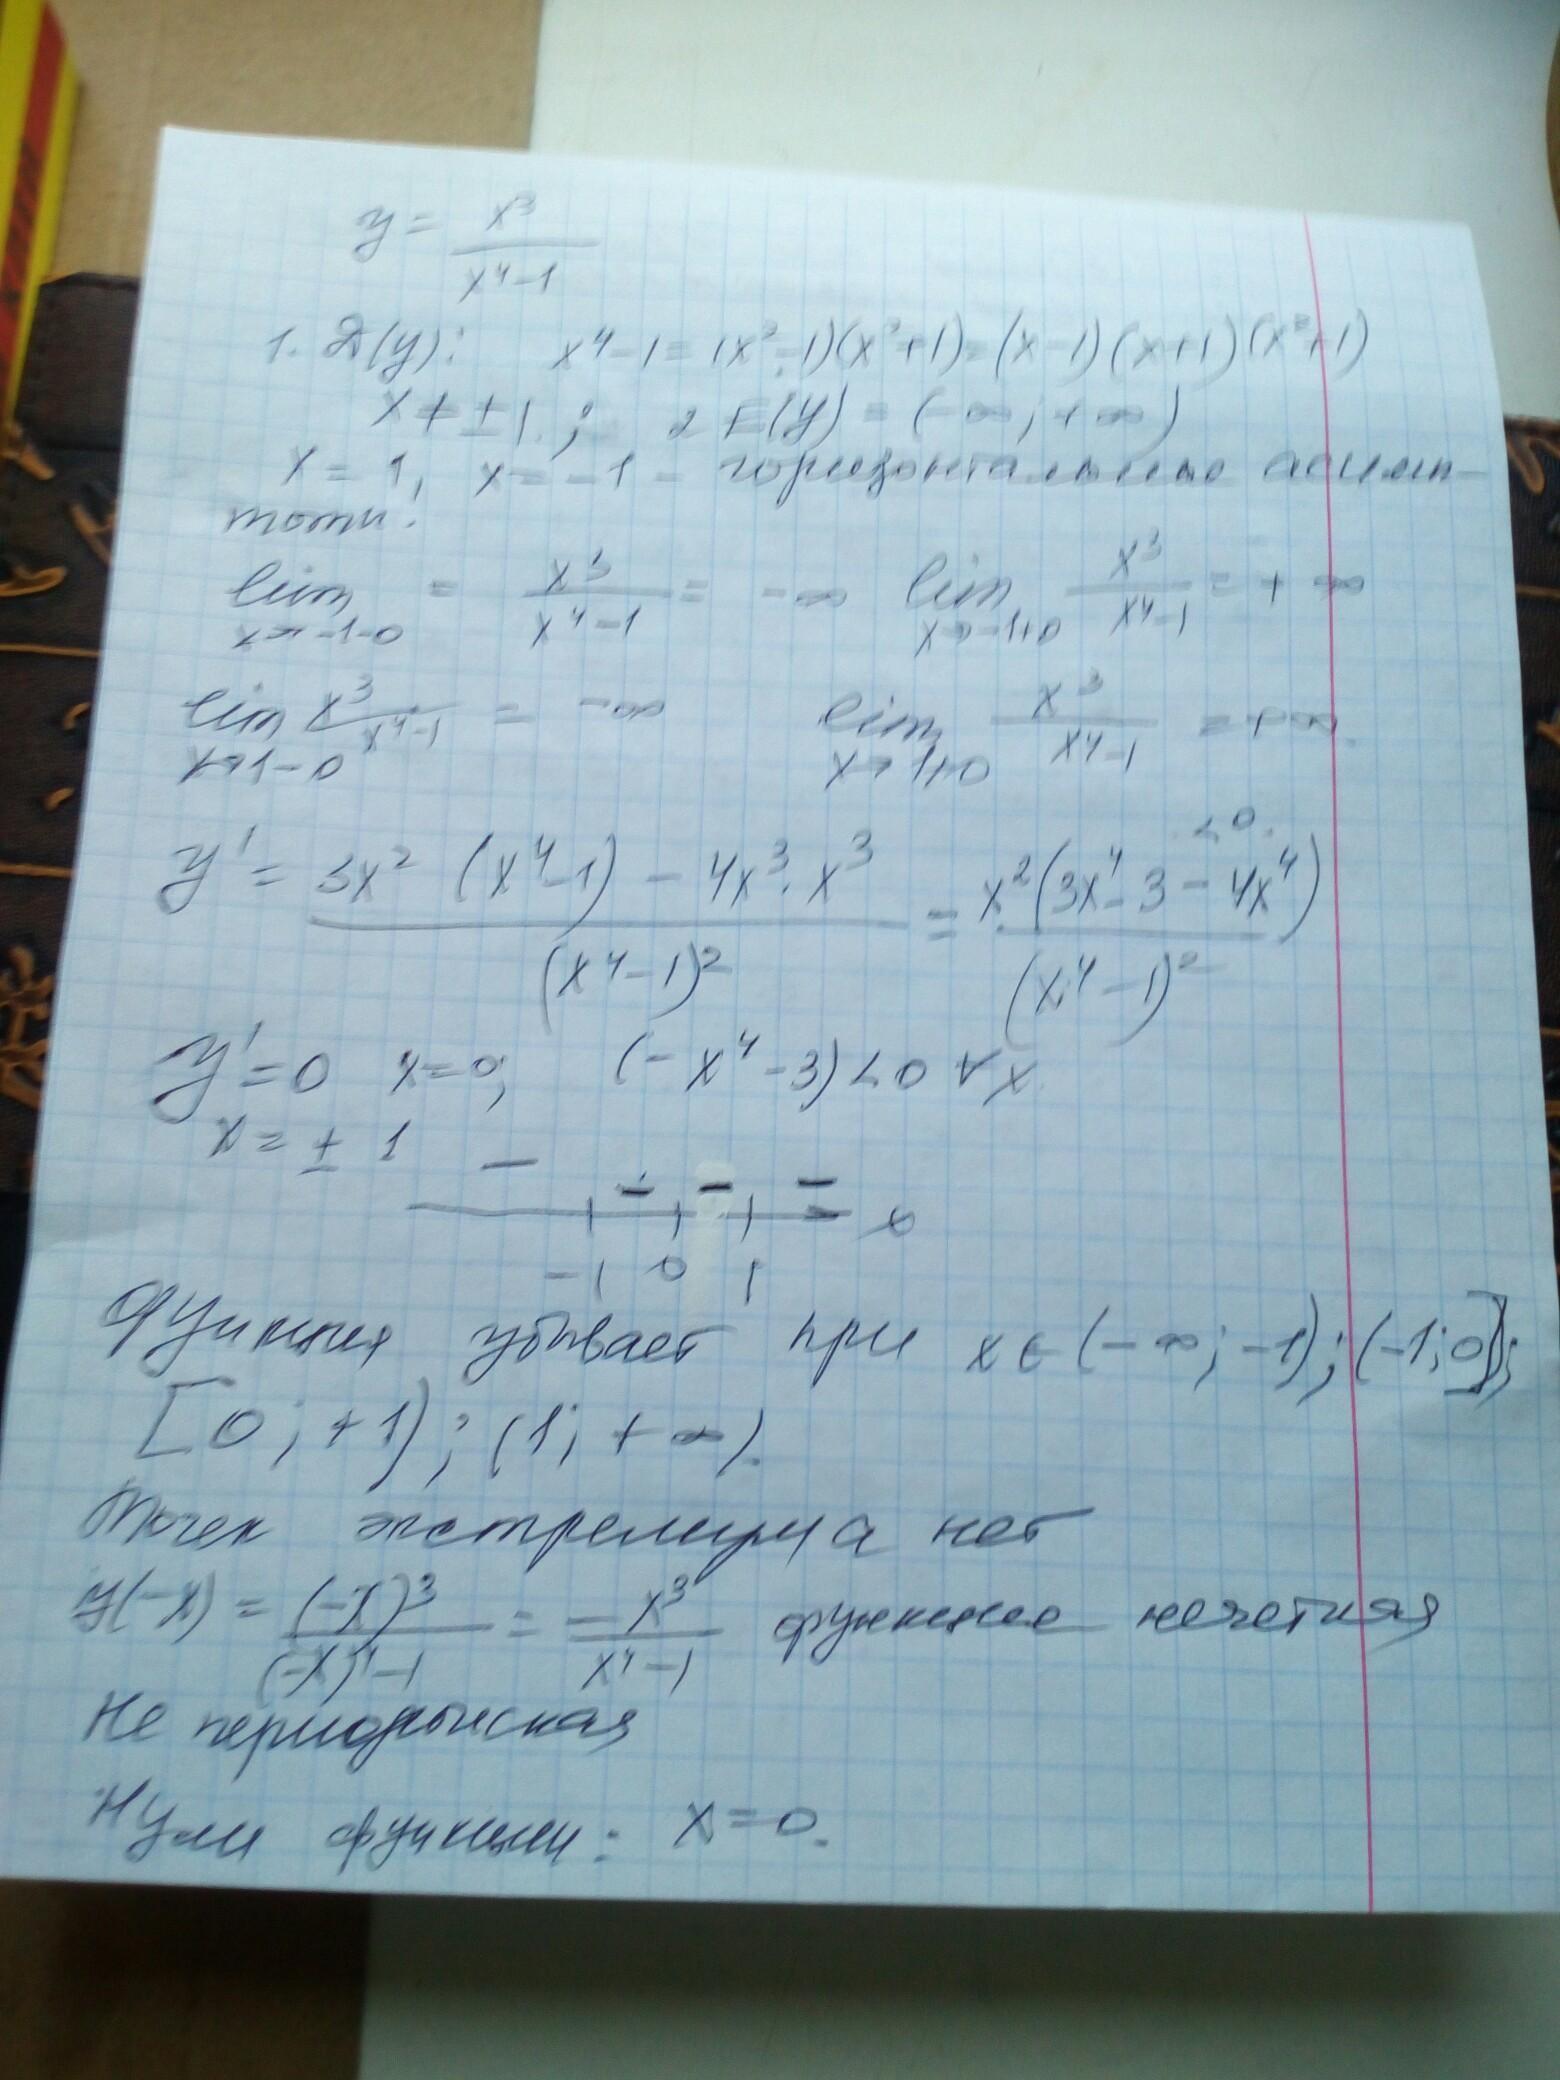 y = x³/(x⁴-1)
1. D(y): x⁴-1 = (x²-1)(x²+1) = (x-1)(x+1)(x²+1)
x ≠ ±1.; 2 E(y) = (-∞; +∞)
x = 1, x = -1 - горизонтальные асимп-
тоты.
lim x→-1-0 = x³/(x⁴-1) = -∞ lim x→-1+0 x³/(x⁴-1) = +∞
lim x→1-0 x³/(x⁴-1) = -∞ lim x→1+0 x³/(x⁴-1) = +∞.
<0.
y' = (3x² (x⁴-1) - 4x³·x³)/(x⁴-1)² = x²(3x⁴-3-4x⁴)/(x⁴-1)²
y' = 0 x=0; (-x⁴-3)<0 ∀x
x = ± 1
- - - -
x
-1 0 1
Функция убывает при x∈(-∞; -1); (-1; 0];
[0; +1); (1; +∞).
Точек экстремума нет
y(-x) = (-x)³/((-x)⁴-1) = -x³/(x⁴-1) функция нечетная
Не периодическая
Нули функции: x=0.